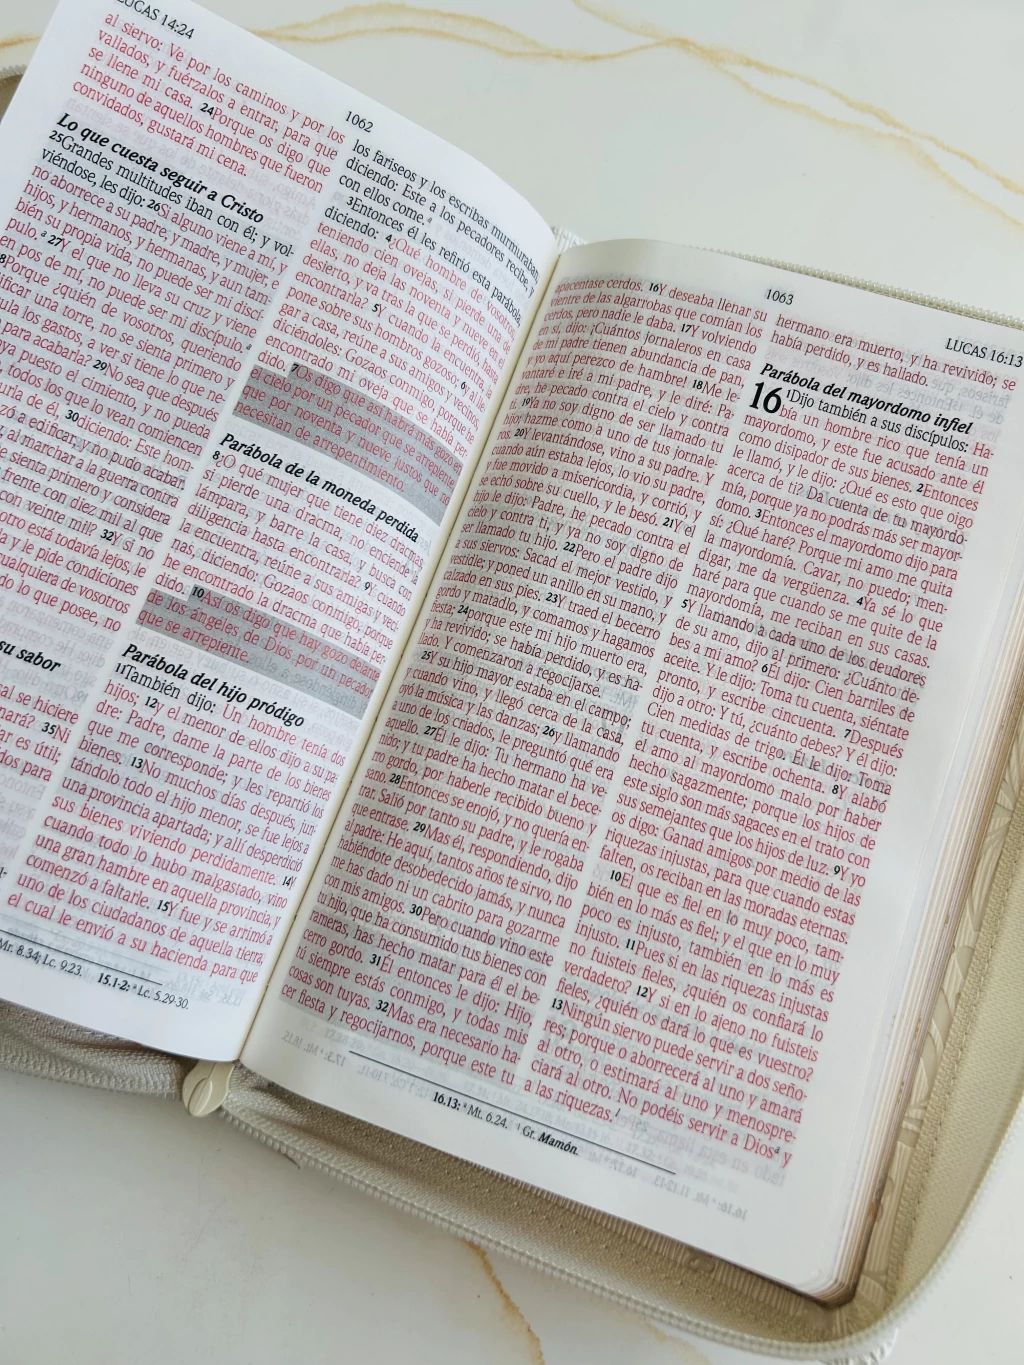 LUCAS 14:24
al siervo: Ve por los caminos y por los
vallados, y fuérzalos a entrar, para que
se llene mi casa. 24Porque os digo que
ninguno de aquellos hombres que fueron
convidados, gustará mi cena.
Lo que cuesta seguir a Cristo
25Grandes multitudes iban con él; y vol-
viéndose, les dijo: 26Si alguno viene a mí, y
no aborrece a su padre, y madre, y mujer, e
hijos, y hermanos, y hermanas, y aun tam-
bién su propia vida, no puede ser mi discí-
pulo.a 27Y el que no lleva su cruz y viene
en pos de mí, no puede ser mi discípulo.a
8Porque ¿quién de vosotros, queriendo
ificar una torre, no se sienta primero y
ula los gastos, a ver si tiene lo que ne-
para acabarla? 29No sea que después
a puesto el cimiento, y no pueda
, todos los que lo vean comiencen
urla de él, 30diciendo: Este hom-
zó a edificar, y no pudo acabar.
al marchar a la guerra contra
se sienta primero y considera
frente con diez mil al que
con veinte mil? 32Y si no
otro está todavía lejos, le
a y le pide condiciones
alquiera de vosotros
do lo que posee, no
su sabor
sal se hiciere
nará? 35Ni
ar es útil;
ídos para
Mr. 8.34; Lc. 9.23. 15.1-2: a Lc. 5.29-30.
1062
los fariseos y los escribas murmuraban,
diciendo: Este a los pecadores recibe, y
con ellos come.a
3Entonces él les refirió esta parábola,
diciendo: 4¿Qué hombre de vosotros,
teniendo cien ovejas, si pierde una de
ellas, no deja las noventa y nueve en el
desierto, y va tras la que se perdió, hasta
encontrarla? 5Y cuando la encuentra, la
pone sobre sus hombros gozoso; 6y al lle-
gar a casa, reúne a sus amigos y vecinos,
diciéndoles: Gozaos conmigo, porque he
encontrado mi oveja que se había per-
dido. 7Os digo que así habrá más gozo en
el cielo por un pecador que se arrepiente,
que por noventa y nueve justos que no
necesitan de arrepentimiento.
Parábola de la moneda perdida
8¿O qué mujer que tiene diez dracmas,
si pierde una dracma, no enciende la
lámpara, y barre la casa, y busca con
diligencia hasta encontrarla? 9Y cuando
la encuentra, reúne a sus amigas y veci-
nas, diciendo: Gozaos conmigo, porque
he encontrado la dracma que había per-
dido. 10Así os digo que hay gozo delante
de los ángeles de Dios por un pecador
que se arrepiente.
Parábola del hijo pródigo
11También dijo: Un hombre tenía dos
hijos; 12y el menor de ellos dijo a su pa-
dre: Padre, dame la parte de los bienes
que me corresponde; y les repartió los
bienes. 13No muchos días después, jun-
tándolo todo el hijo menor, se fue lejos a
una provincia apartada; y allí desperdició
sus bienes viviendo perdidamente. 14Y
cuando todo lo hubo malgastado, vino
una gran hambre en aquella provincia, y
comenzó a faltarle. 15Y fue y se arrimó a
uno de los ciudadanos de aquella tierra,
el cual le envió a su hacienda para que
apacentase cerdos. 16Y deseaba llenar su
vientre de las algarrobas que comían los
cerdos, pero nadie le daba. 17Y volviendo
en sí, dijo: ¡Cuántos jornaleros en casa
de mi padre tienen abundancia de pan,
y yo aquí perezco de hambre! 18Me le-
vantaré e iré a mi padre, y le diré: Pa-
dre, he pecado contra el cielo y contra
ti. 19Ya no soy digno de ser llamado tu
hijo; hazme como a uno de tus jornale-
ros. 20Y levantándose, vino a su padre. Y
cuando aún estaba lejos, lo vio su padre,
y fue movido a misericordia, y corrió, y
se echó sobre su cuello, y le besó. 21Y el
hijo le dijo: Padre, he pecado contra el
cielo y contra ti, y ya no soy digno de
ser llamado tu hijo. 22Pero el padre dijo
a sus siervos: Sacad el mejor vestido, y
vestidle; y poned un anillo en su mano, y
calzado en sus pies. 23Y traed el becerro
gordo y matadlo, y comamos y hagamos
fiesta; 24porque este mi hijo muerto era,
y ha revivido; se había perdido, y es ha-
llado. Y comenzaron a regocijarse.
25Y su hijo mayor estaba en el campo;
y cuando vino, y llegó cerca de la casa,
oyó la música y las danzas; 26y llamando
a uno de los criados, le preguntó qué era
aquello. 27Él le dijo: Tu hermano ha ve-
nido; y tu padre ha hecho matar el bece-
rro gordo, por haberle recibido bueno y
sano. 28Entonces se enojó, y no quería en-
trar. Salió por tanto su padre, y le rogaba
que entrase. 29Mas él, respondiendo, dijo
al padre: He aquí, tantos años te sirvo, no
habiéndote desobedecido jamás, y nunca
me has dado ni un cabrito para gozarme
con mis amigos. 30Pero cuando vino este
tu hijo, que ha consumido tus bienes con
rameras, has hecho matar para él el be-
cerro gordo. 31Él entonces le dijo: Hijo,
tú siempre estás conmigo, y todas mis
cosas son tuyas. 32Mas era necesario ha-
cer fiesta y regocijarnos, porque este tu
1063
LUCAS 16:13
hermano era muerto, y ha revivido; se
había perdido, y es hallado.
Parábola del mayordomo infiel
16 1Dijo también a sus discípulos: Ha-
bía un hombre rico que tenía un
mayordomo, y este fue acusado ante él
como disipador de sus bienes. 2Entonces
le llamó, y le dijo: ¿Qué es esto que oigo
acerca de ti? Da cuenta de tu mayordo-
mía, porque ya no podrás más ser mayor-
domo. 3Entonces el mayordomo dijo para
sí: ¿Qué haré? Porque mi amo me quita
la mayordomía. Cavar, no puedo; men-
digar, me da vergüenza. 4Ya sé lo que
haré para que cuando se me quite de la
mayordomía, me reciban en sus casas.
5Y llamando a cada uno de los deudores
de su amo, dijo al primero: ¿Cuánto de-
bes a mi amo? 6Él dijo: Cien barriles de
aceite. Y le dijo: Toma tu cuenta, siéntate
pronto, y escribe cincuenta. 7Después
dijo a otro: Y tú, ¿cuánto debes? Y él dijo:
Cien medidas de trigo. Él le dijo: Toma
tu cuenta, y escribe ochenta. 8Y alabó
el amo al mayordomo malo por haber
hecho sagazmente; porque los hijos de
este siglo son más sagaces en el trato con
sus semejantes que los hijos de luz. 9Y yo
os digo: Ganad amigos por medio de las
riquezas injustas, para que cuando estas
falten, os reciban en las moradas eternas.
10El que es fiel en lo muy poco, tam-
bién en lo más es fiel; y el que en lo muy
poco es injusto, también en lo más es
injusto. 11Pues si en las riquezas injustas
no fuisteis fieles, ¿quién os confiará lo
verdadero? 12Y si en lo ajeno no fuisteis
fieles, ¿quién os dará lo que es vuestro?
13Ningún siervo puede servir a dos seño-
res; porque o aborrecerá al uno y amará
al otro, o estimará al uno y menospre-
ciará al otro. No podéis servir a Diosa y
a las riquezas.1
16.13: a Mt. 6.24. 1 Gr. Mamón.